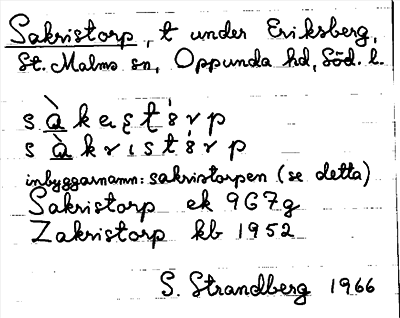 Sakristorp, t under Eriksberg,
St. Malms sn, Oppunda hd, Söd. l.
inbyggarnamn: sakristorpen (se detta)
Sakristorp ek 9G7g
Zakristorp kb 1952
S. Strandberg 1966